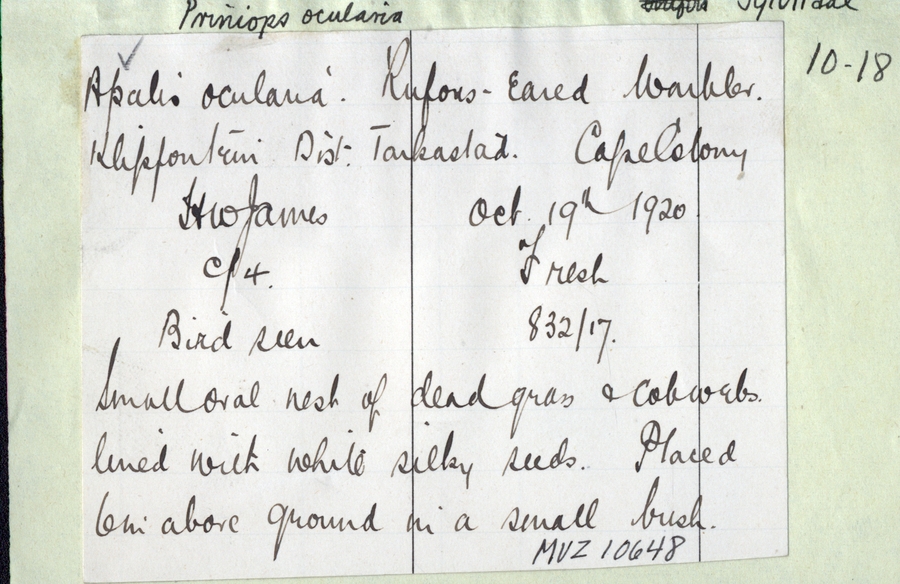 Priniops ocularia Sylviidae
10-18
Apalis ocularia. Rufous-Eared Warbler.
Klipfontein Dist. Tarkastad. Cape Colony
HW James Oct. 19th 1920
c/4. Fresh
Bird seen 832/17.
Small oval nest of dead grass & cobwebs.
lined with white silky seeds. Placed
6in above ground in a small bush.
MVZ 10648